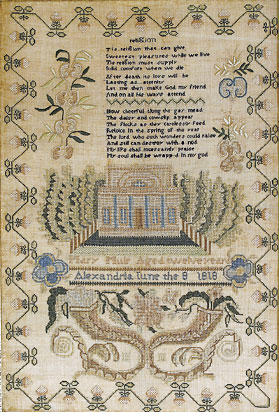 religion
Tis religion that can give
Sweetest pleasures while we live
Tis religion must supply
Solid comfort when we die
After death its joys will be
Lasting as eternity
Let me then make God my friend
And on all his ways attend
How cheerful along the gay mead
The daisy and cowslip appear
The flocks as they carelessly feed
Rejoice in the spring of the year
The lord who such wonders could raise
And still can destroy with a nod
My lips shall incessantly praise
My soul shall be wrapped in my god
Mary Muir Aged twelve years
Alexandria June the 8 1818